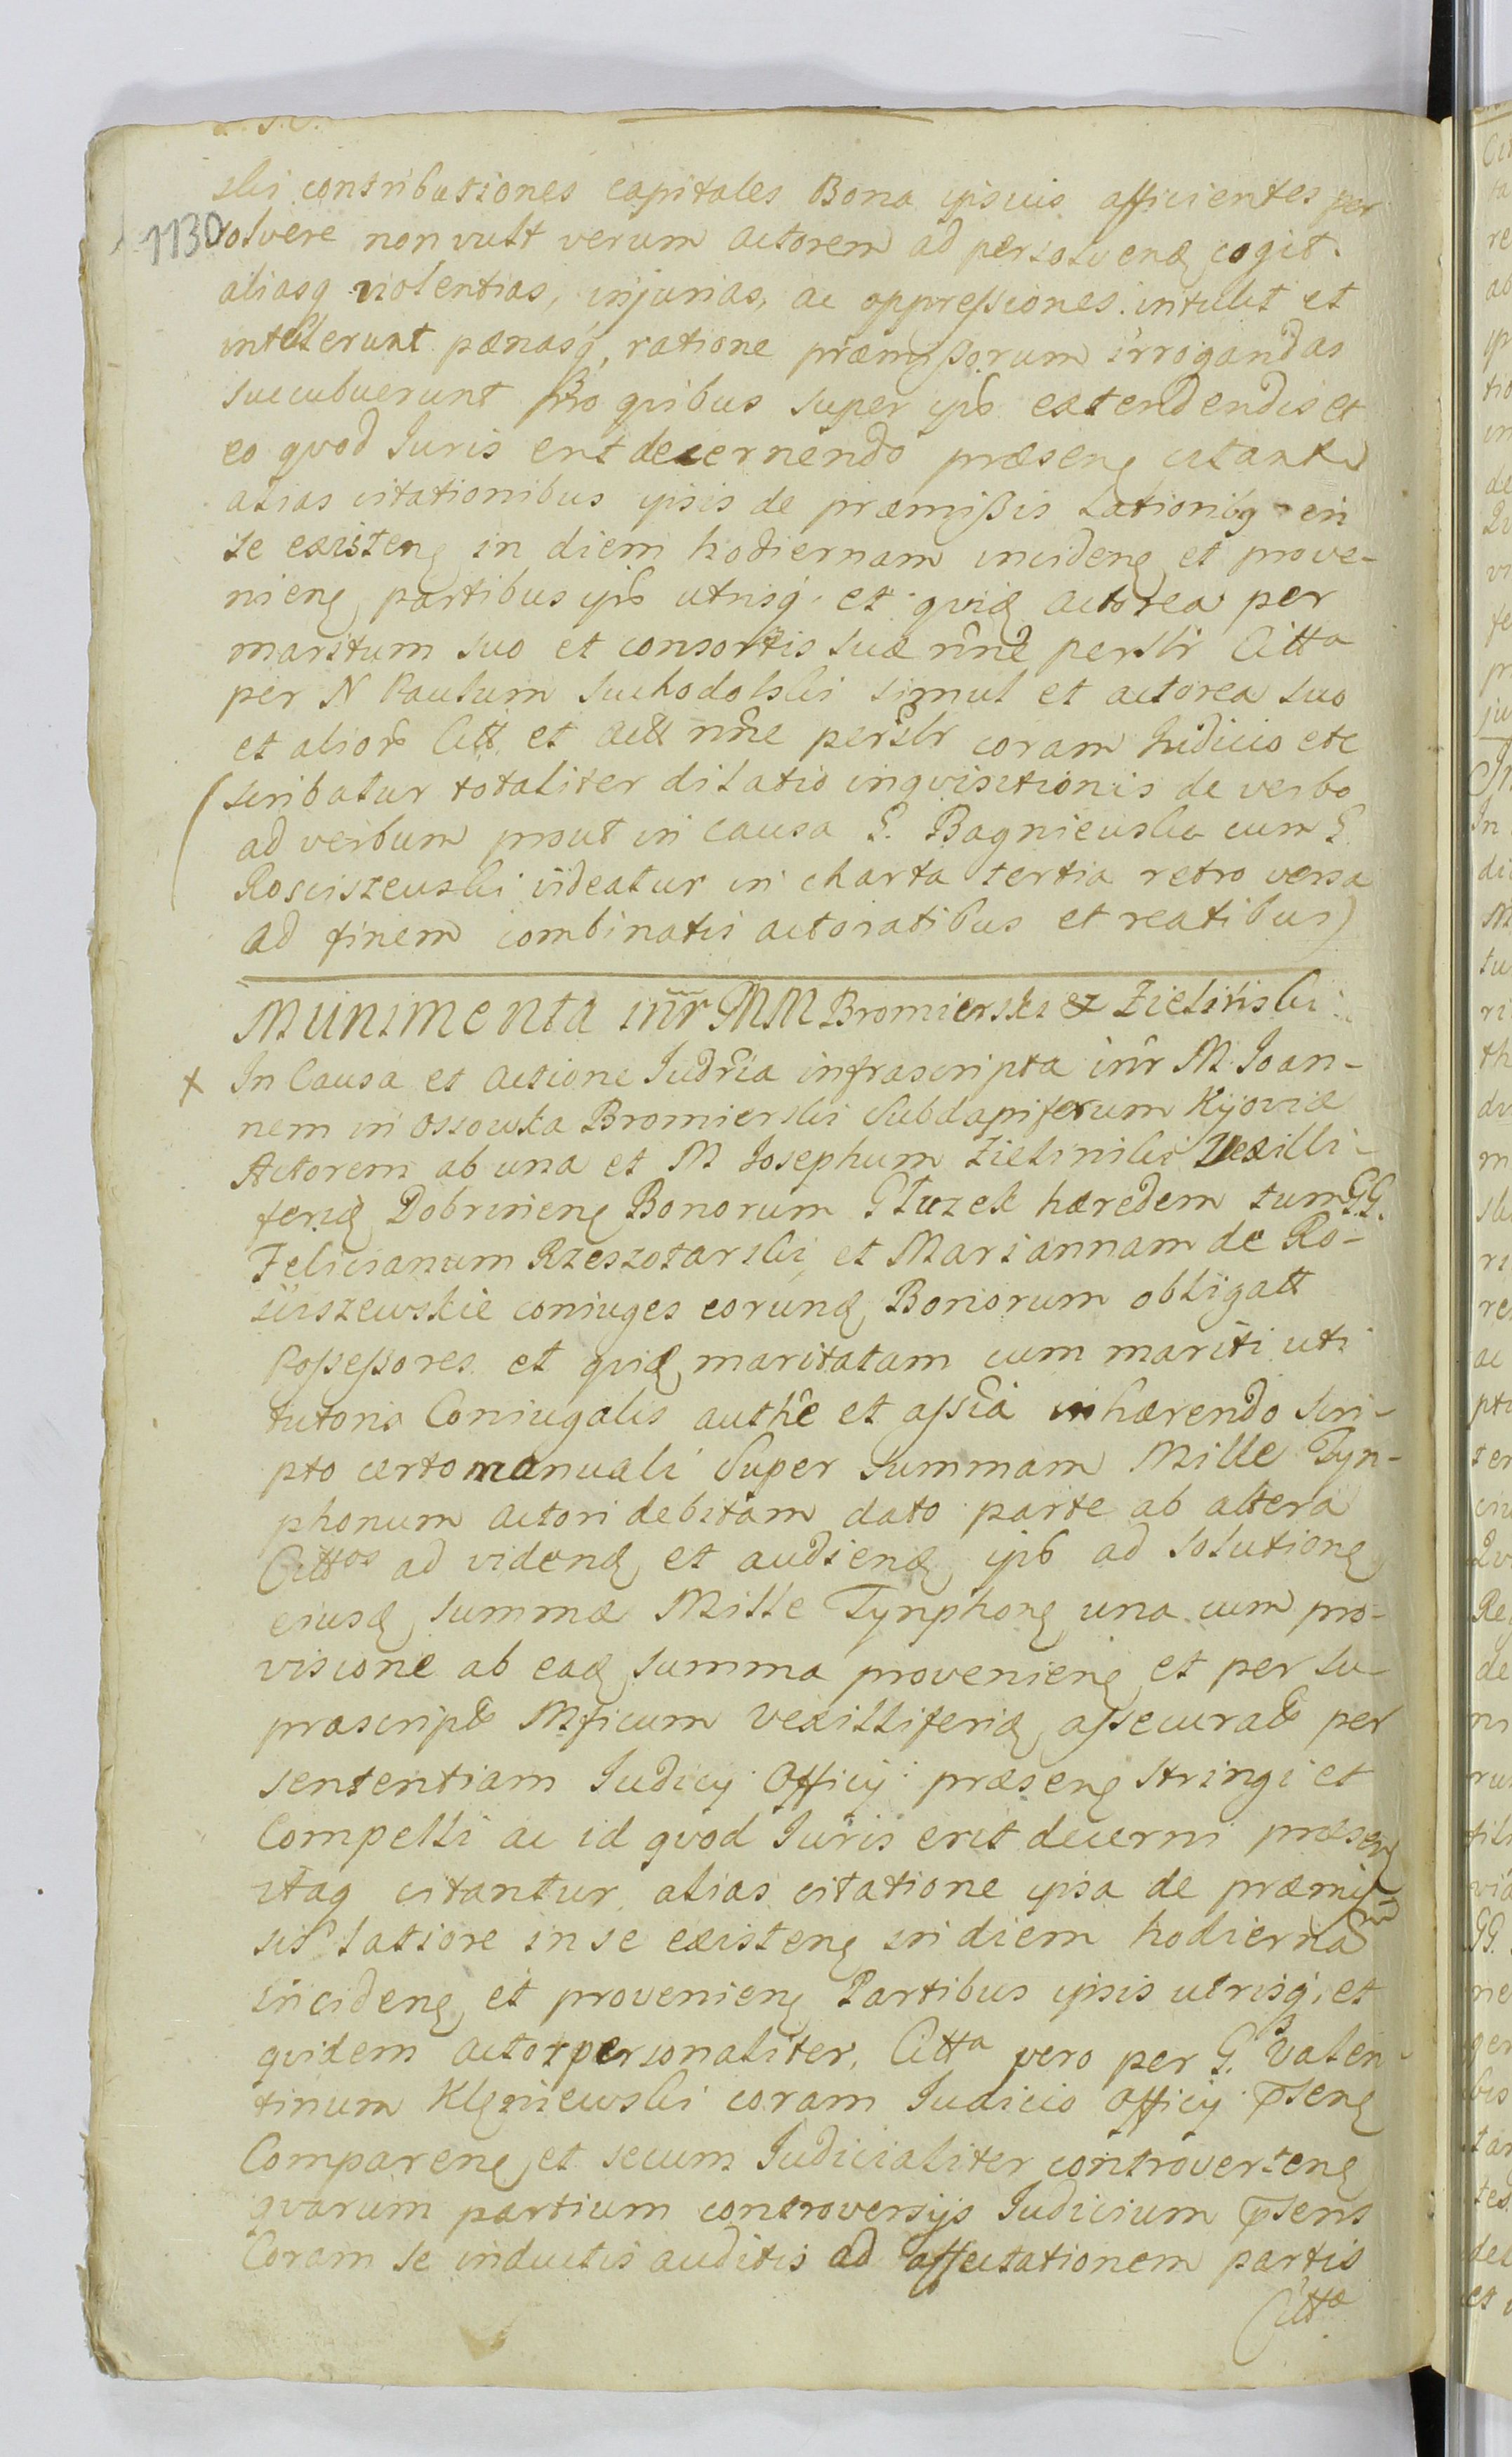 ski contributiones capitales Bona ipsius afficientes per
1130
solvere non vult verum Actorem ad persolvend cogit.
aliasq violentias, injurias, ac oppressiones intulit et
intulerunt pænasq, ratione præmissorum irrogandas
succubuerunt Pro quibus super ipsos extendendis et
eo quod Juris erit decernendo præsens citantur
alias citationibus ipsis de præmissis Lationibq in
se existen in diem hodiernam inciden et prove-
nien partibus ipsis utrisq et quid Actorea per
maritum suo et consortis suæ nne perslr Citta
per N Paulum Suchodolski simul et actorea suo
et alior Citt et Actt nne perslr coram Judicio etc
(scribatur totaliter dilatio inquisitionis de verbo
ad verbum prout in causa G. Bagniewski cum G.
Rosciszewski videatur in charta tertia retro versa
ad finem combinatis actoratibus et reatibus)
Munimenta inr MM Bromierski et Zielinski
x In Causa et Actione Judria infrascripta inr M. Joan-
nem in Ossowka Bromierski Subdapiferum Kijoviæ
Actorem ab una et M Josephum Zielinski Vexilli-
ferid Dobrinen Bonorum Głuzek hæredem tum GG.
Felicianum Rzeszotarski et Mariannam de Ro-
sciszewskie coniuges eorund Bonorum obligatt
Possessores et quid maritatam cum mariti uti
tutoris Coniugalis authe et assia inhærendo scri-
pto certo manuali Super summam Mille Tyn-
phonum Actori debitam dato parte ab altera
Cittos ad vidend et audiend ipso ad solutionem
eiusd summæ Mille Tynphon una cum pro-
visione ab ead summa provenien et per su-
prascript Mficum Vexilliferid assecurat per
sententiam Judicij Officij præsen stringi et
Compelli ac id quod Juris erit decerni præsen
itaq citantur alias citatione ipsa de præmis-
sis latiore in se existen in diem hodiernam
inciden et provenien Partibus ipsis utrisq et
quidem actor personaliter, Citta vero per G. Valen-
tinum Klęniewski coram Judicio Officij psen
Comparen et secum Judicialiter controverten
quarum partium controversijs Judicium psens
Coram se inductis auditis ad affectationem partis
Citta